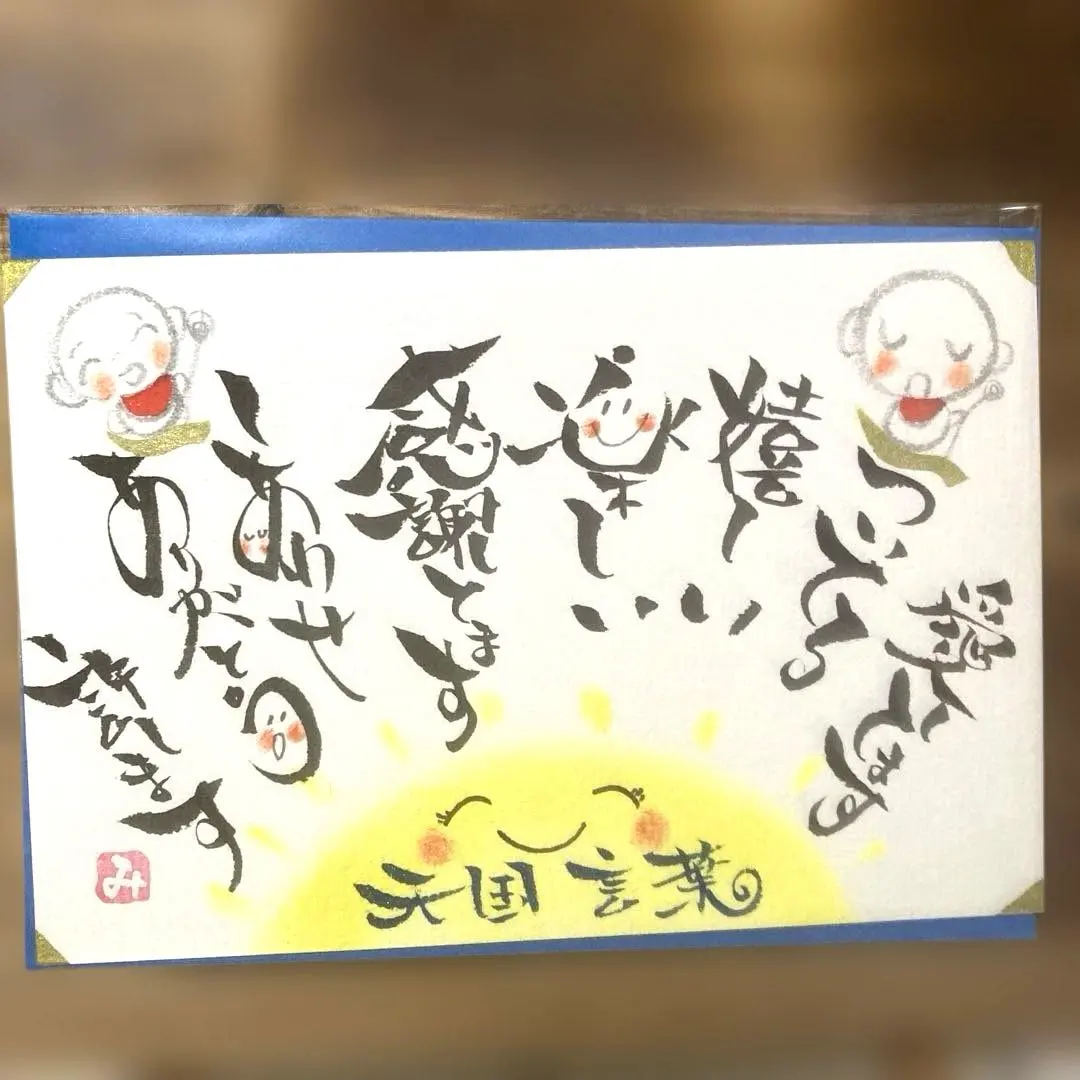 愛してます
ついてる
嬉しい
楽しい
感謝してます
しあわせ
ありがとう
許します
天国言葉
み